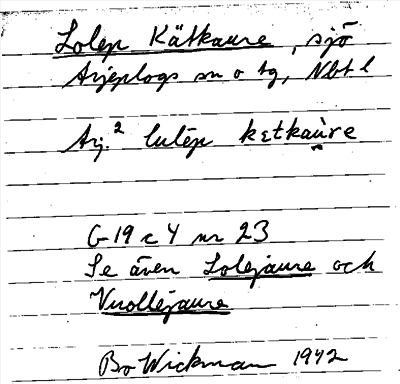 Lolep Kätkaure, sjö
Arjeplogs sn o tg, Nbt l
Arj.² lulēp kɛtkau̯re
G 19 c 4 nr 23
Se även Lolejaure och
Vuollejaure
Bo Wickman 1942